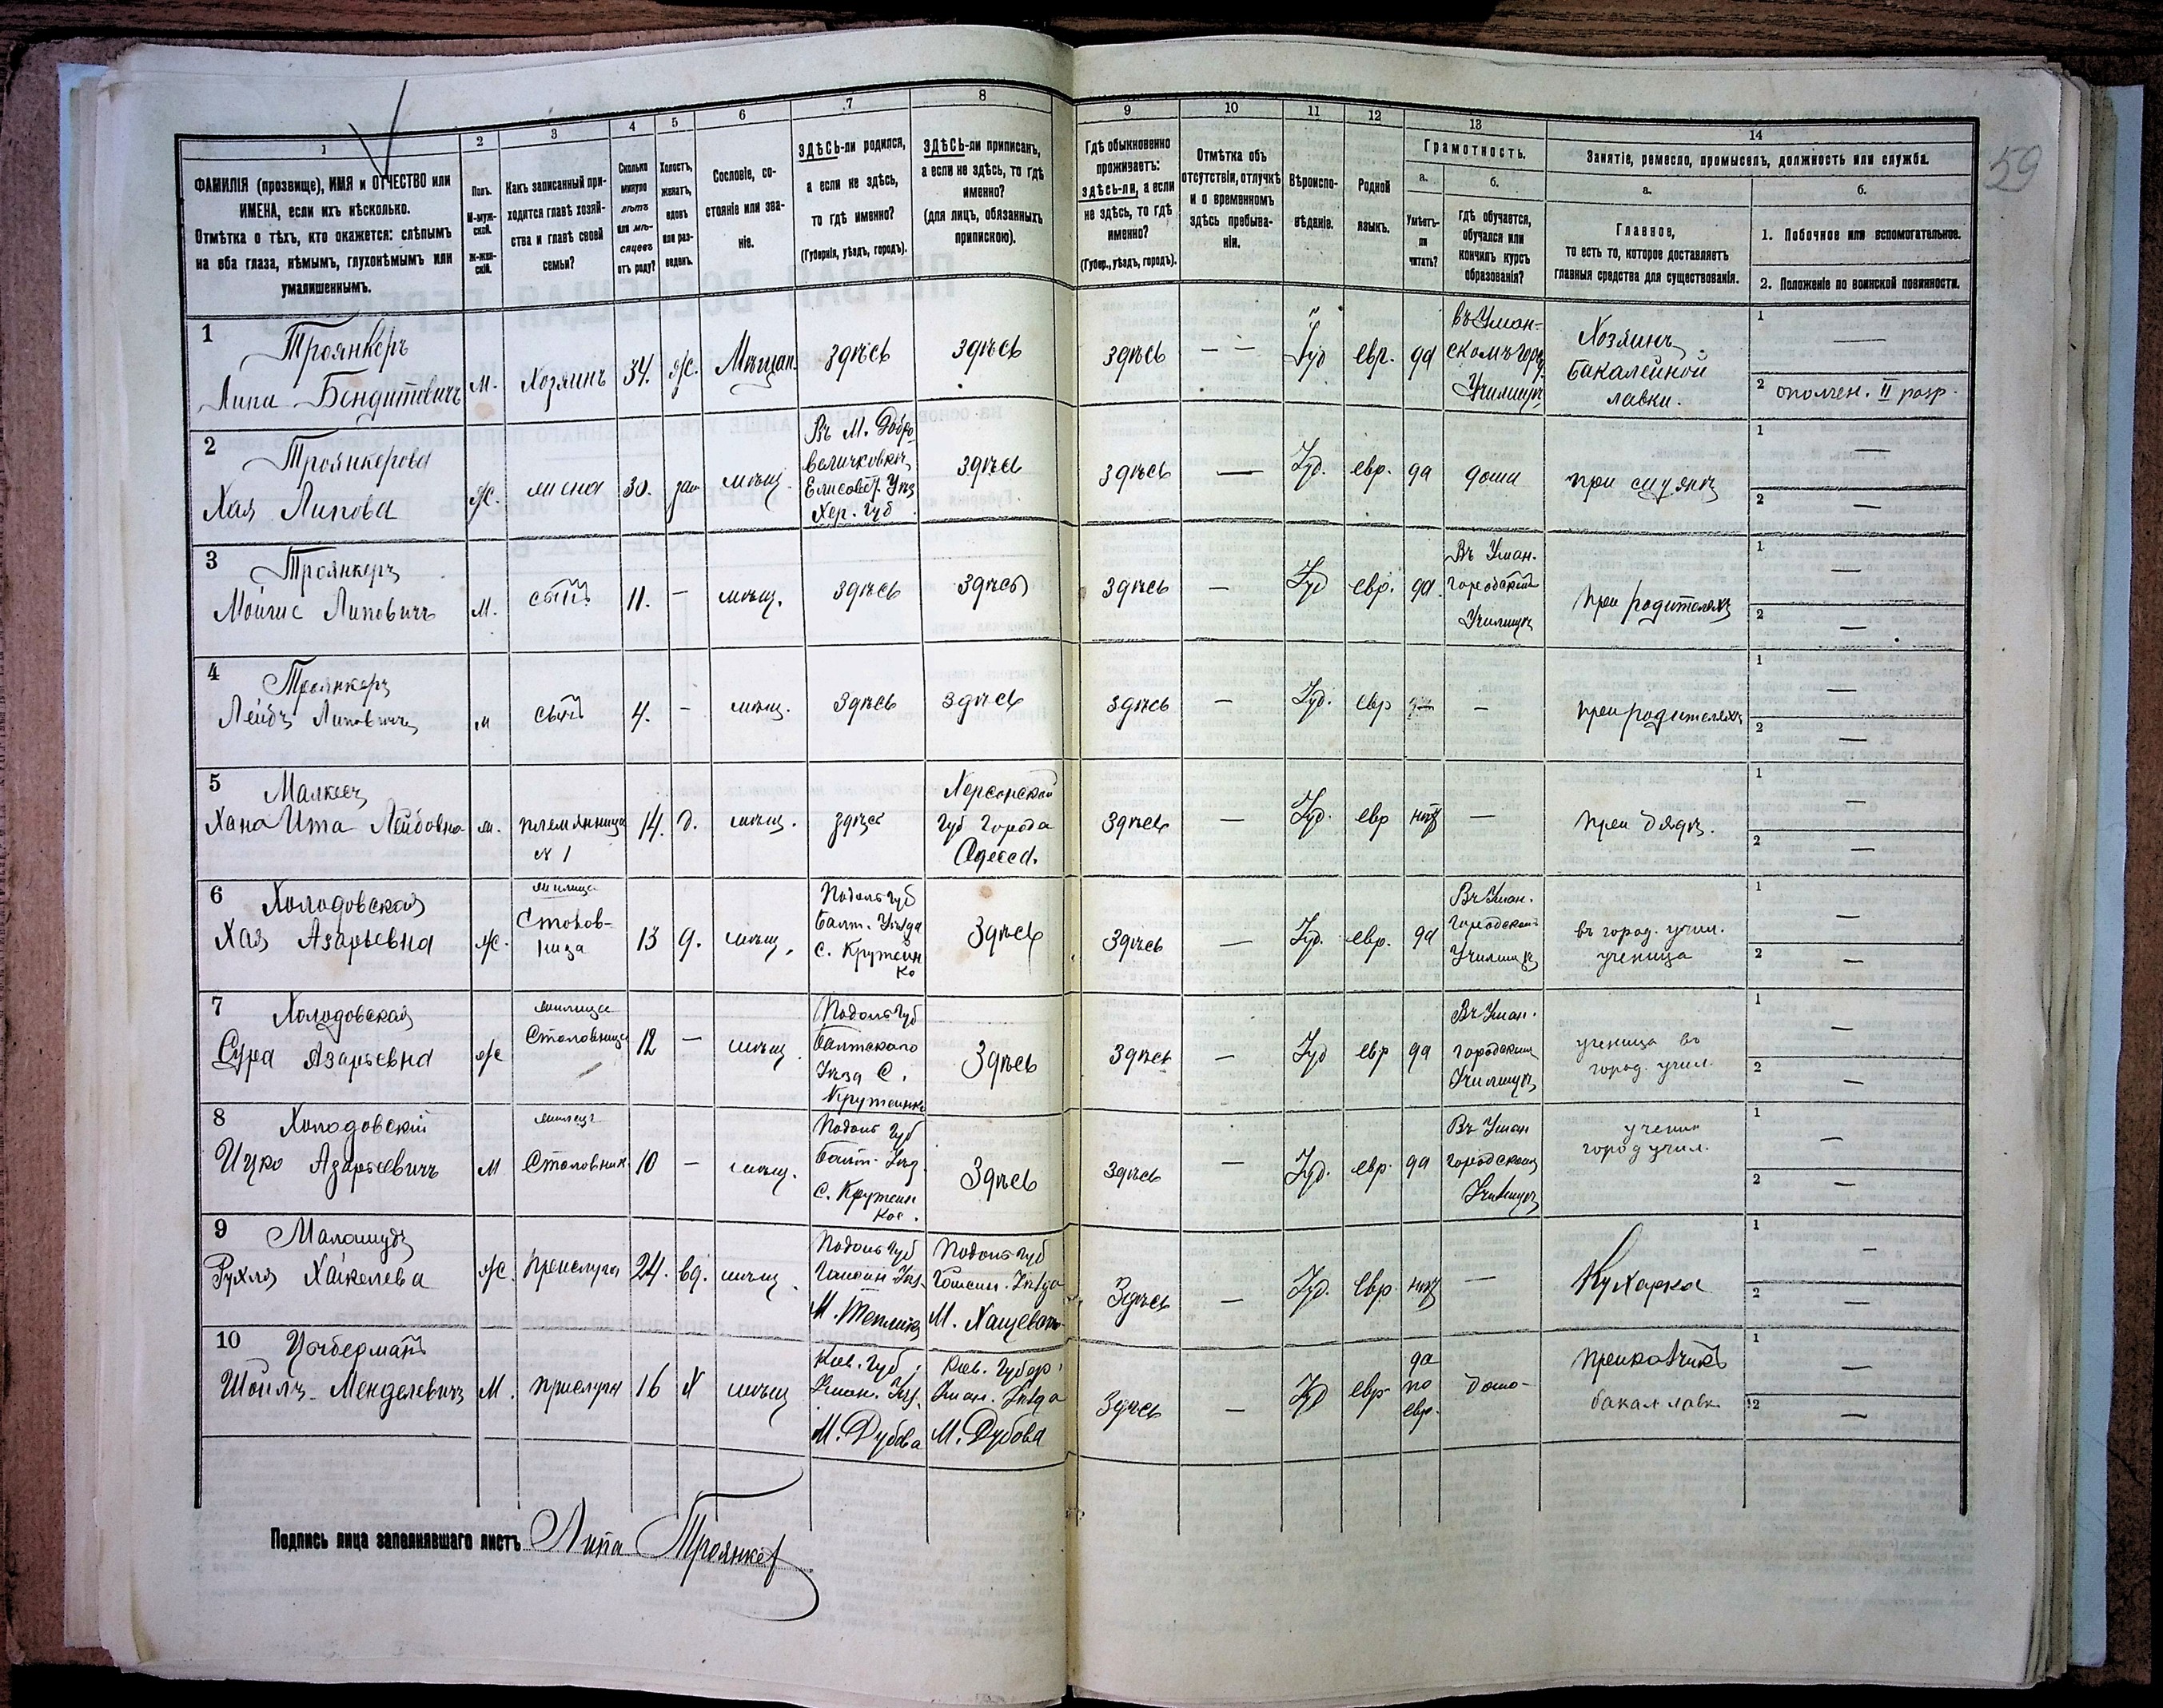 59
1 2 3 4 5 6 7 8 9 10 11 12 13 14
ФАМИЛІЯ (прозвище), ИМЯ и ОТЧЕСТВО или
ИМЕНА, если ихъ нѣсколько.
Отмѣтка о тѣхъ, кто окажется: слѣпымъ
на оба глаза, нѣмымъ, глухонѣмымъ или
умалишеннымъ.
Полъ.
М-муж-
ской.
ж-жен-
скій.
Какъ записанный при-
ходится главѣ хозяй-
ства и главѣ своей
семьи?
Сколько
минуло
лѣтъ
или мѣ-
сяцевъ
отъ роду?
Холостъ,
женатъ,
вдовъ
или раз-
веденъ.
Сословіе, со-
стояніе или зва-
ніе.
ЗДѢСЬ-ли родился,
а если не здѣсь,
то гдѣ именно?
(Губернія, уѣздъ, городъ).
ЗДѢСЬ-ли приписанъ,
а если не здѣсь, то гдѣ
именно?
(для лицъ, обязанныхъ
припискою).
Гдѣ обыкновенно
проживаетъ:
здѣсь-ли, а если
не здѣсь, то гдѣ
именно?
(Губер., уѣздъ, городъ).
Отмѣтка объ
отсутствіи, отлучкѣ
и о временномъ
здѣсь пребыва-
ніи.
Вѣроиспо-
вѣданіе.
Родной
языкъ.
Грамотность.
а.
Умѣетъ-
ли
читать?
б.
гдѣ обучается,
обучался или
кончилъ курсъ
образованія?
Занятіе, ремесло, промыселъ, должность или служба.
а.
Главное,
то есть то, которое доставляетъ
главныя средства для существованія.
б.
1. Побочное или вспомогательное.
2. Положеніе по воинской повинности.
1
Троянкеръ
Липа Бендитовичъ
М.
Хозяинъ
34.
Ж.
Мѣщан.
здѣсь
здѣсь
здѣсь
— —
Іуд
евр.
да
въ Уман-
скомъ гор.
Училищѣ
Хозяинъ
бакалейной
лавки.
1 —
2 ополчен. II разр.
2
Троянкерова
Хая Липова
Ж.
жена
30.
зам
мѣщ.
Въ М. Добро
величковкѣ
Елисовет. Уѣз
Хер. Губ.
здѣсь
здѣсь
—
Іуд.
евр.
да
дома
при мужѣ
1 —
2 —
3
Троянкеръ
Мойшс Липовичъ
М.
сынъ
11.
—
мѣщ.
здѣсь
здѣсь
здѣсь
—
Іуд
евр.
да.
Въ Уман.
городскомъ
Училищѣ
при родителяхъ
1 —
2 —
4
Троянкеръ
Лейбъ Липовичъ
м
сынъ
4.
—
мѣщ.
здѣсь
здѣсь
здѣсь
—
Іуд.
евр
—
при родителяхъ
1 —
2 —
5
Хана Ита Лейбовна
м.
племянница
№ 1
14.
д.
мѣщ.
здѣсь
Херсонской
Губ города
Одесса.
здѣсь
—
Іуд.
евр
нѣтъ
—
при дядѣ.
1 —
2 —
6
Холодовская
Хая Азарьевна
Ж.
жилица
Столов-
ница
13
д.
мѣщ.
Подоль Губ
Балт. Уѣзда
С. Крутень
ко
Здѣсь
здѣсь
—
Іуд.
евр.
да
Въ Уман.
городскомъ
Училищѣ
въ город. учил.
ученица
1 —
2 —
7
Холодовская
Сура Азарьевна
Ж
жилица
Столовница
12
—
мѣщ.
Подоль Губ
Балтскаго
Уѣзд С.
Крутенько
Здѣсь
здѣсь
—
Іуд
евр
да
Въ Уман.
городскомъ
Училищѣ
ученица въ
город. учил.
1 —
2 —
8
Холодовскій
Ицко Азарьевичъ
М
жилецъ
Столовник
10
—
мѣщ.
Подоль Губ
Балт. Уѣзд.
С. Крутень
кое.
Здѣсь
здѣсь
—
Іуд.
евр.
да
Въ Уман
городскомъ
Училищѣ
ученик
город учил.
1 —
2 —
9
Рухля Хайкелева
Ж.
прислуга
24.
вд.
мѣщ.
Подоль Губ
Гайсин Уѣз.
М. Тепликъ
Подоль Губ
Гайсин. Уѣзда
М. Хащевато
Здѣсь
—
Іуд.
Евр
нѣтъ
—
Кухарка
1 —
2 —
10
Цукберманъ
Шойлъ Менделевичъ
М.
прислуга
16
Х
мѣщ
Кіев. Губ.
Уман. Уѣз.
М. Дубова
Кіев. Губер.
Уман. Уѣзда
М. Дубова
Здѣсь
—
Іуд
евр
да
по
евр.
дома
прикащикъ
бакал лавк.
1 —
2 —
Подпись лица заполнявшаго листъ Липа Троянкер